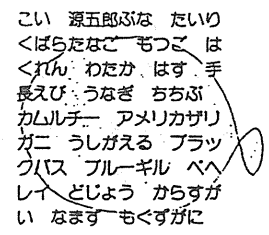 こい 源五郎ぶな たいり
くばらたなご もつご は
くれん わたか はす 手
長えび うなぎ ちちぶ
カムルチー アメリカザリ
ガニ うしがえる ブラッ
クバス ブルーギル ペヘ
レイ どじょう からすが
い なまず もくずがに